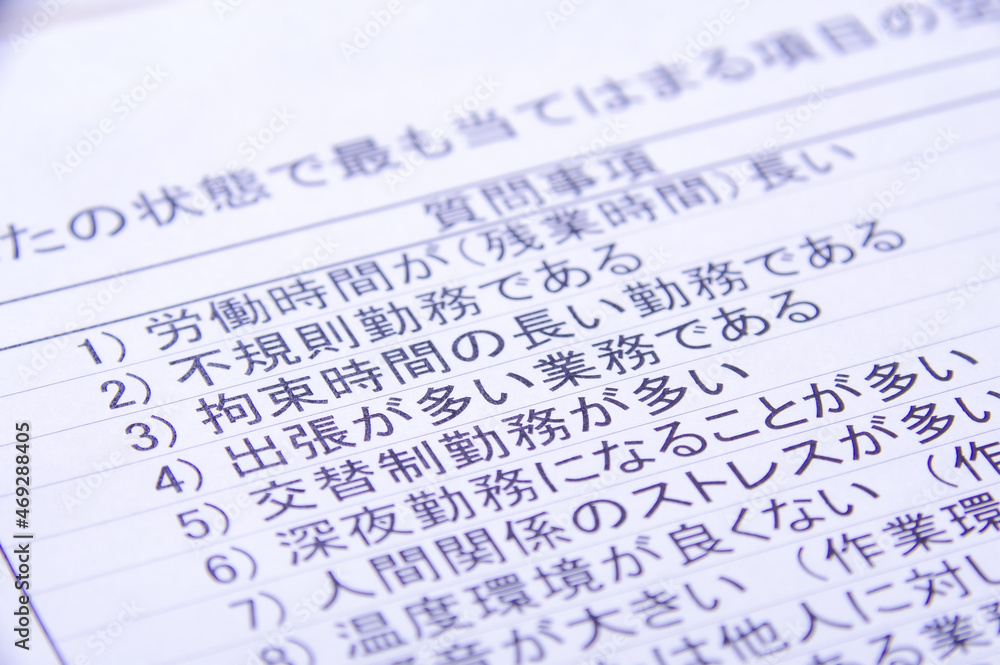 たの状態で最も当てはまる項目の空
質問事項
1) 労働時間が(残業時間)長い
2) 不規則勤務である
3) 拘束時間の長い勤務である
4) 出張が多い業務である
5) 交替制勤務が多い
6) 深夜勤務になることが多い
7) 人間関係のストレスが多い
8) 温度環境が良くない (作
音が大きい (作業環
は他人に対し
る業務
Adobe Stock | #469288405